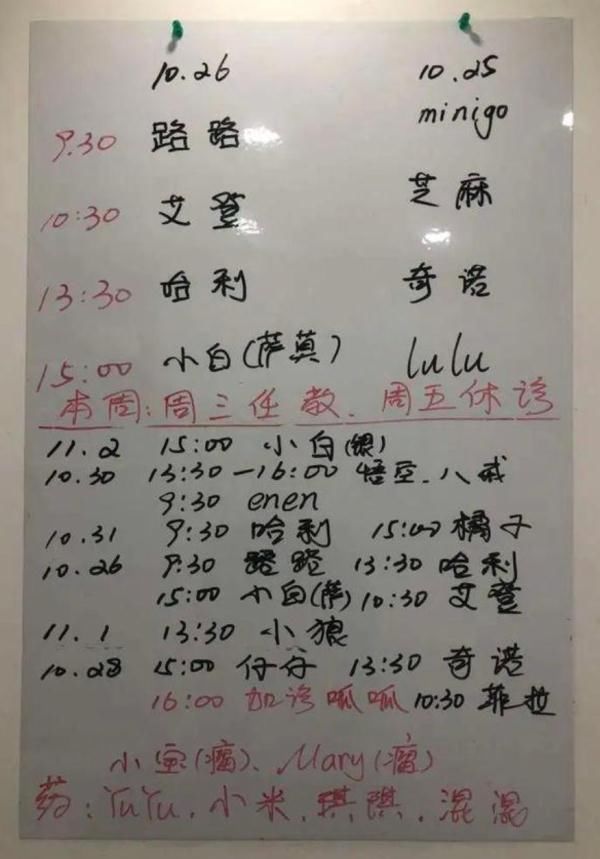 10.26 10.25
9:30 路路 minigo
10:30 艾登 芝麻
13:30 哈利 奇诺
15:00 小白(萨莫) lulu
本周:周三任教、周五休诊
11.2 15:00 小白(银)
10.30 13:30—16:00 悟空.八戒
9:30 enen
10.31 9:30 哈利 15:00 橘子
10.26 9:30 路路 13:30 哈利
15:00 小白(萨) 10:30 艾登
11.1 13:30 小狼
10.28 15:00 仔仔 13:30 奇诺
16:00 加诊呱呱 10:30 菲拉
小宝(瘤)、Mary(瘤)
药:YuYu.小米.琪琪.混混